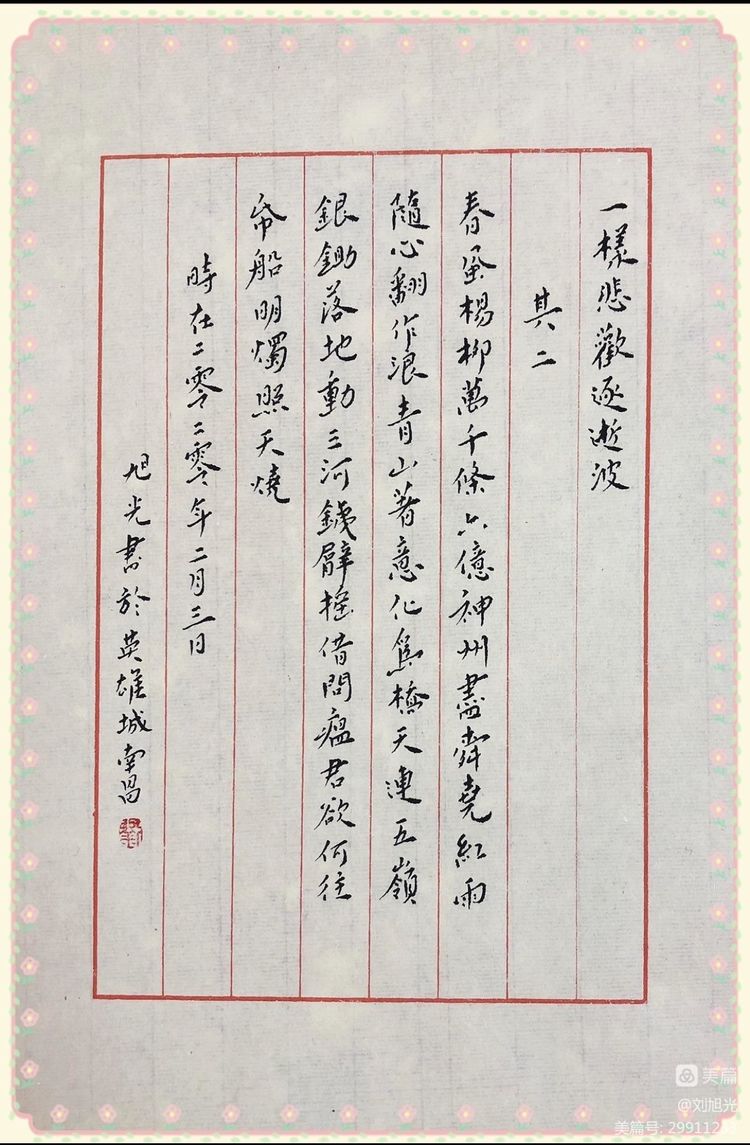 一樣悲歡逐逝波
其二
春風楊柳萬千條六億神州盡舜堯紅雨
隨心翻作浪青山著意化為橋天連五嶺
銀鋤落地動三河鐵臂搖借問瘟君欲何往
帋船明燭照天燒
時在二零二零年二月三日
旭光書於英雄城南昌
美篇
@刘旭光
美篇号: